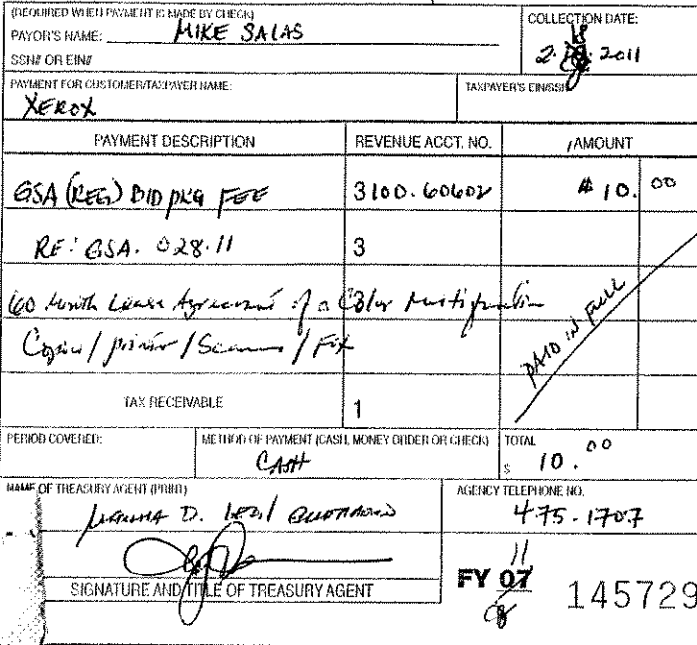 (REQUIRED WHEN PAYMENT IS MADE BY CHECK)
PAYOR'S NAME: MIKE SALAS
SSN# OR EIN#
COLLECTION DATE:
18
2. 2011
PAYMENT FOR CUSTOMER/TAXPAYER NAME:
XEROX
TAXPAYER'S EIN/SSN
PAYMENT DESCRIPTION REVENUE ACCT. NO. AMOUNT
GSA (REG) BID PKG FEE 3100.60602 # 10. 00
RE: GSA. 028.11 3
60 Month Lease Agreement of a Color Multifunction
Copier / printer / Scanner / Fax
PAID IN FULL
TAX RECEIVABLE 1
PERIOD COVERED:
METHOD OF PAYMENT (CASH, MONEY ORDER OR CHECK)
CASH
TOTAL
$ 10.00
NAME OF TREASURY AGENT (PRINT)
D.
AGENCY TELEPHONE NO.
475-1707
SIGNATURE AND TITLE OF TREASURY AGENT
11
FY 07 145729